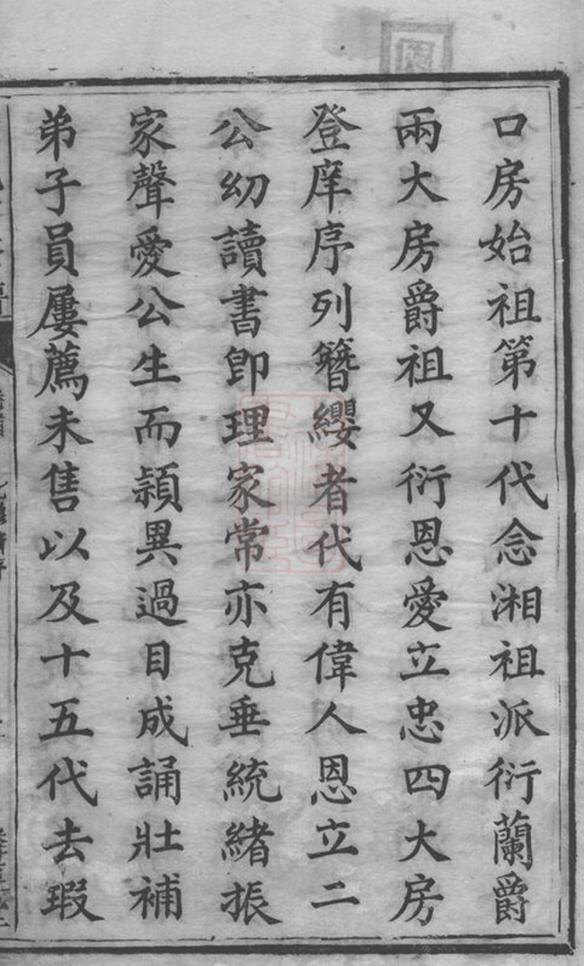 口房始祖第十代念湘祖派衍蘭爵
兩大房爵祖又衍恩愛立忠四大房
登庠序列簪纓者代有偉人恩立二
公幼讀書卽理家常亦克垂統緒振
家聲愛公生而頴異過目成誦壯補
弟子員屢薦未售以及十五代去瑕